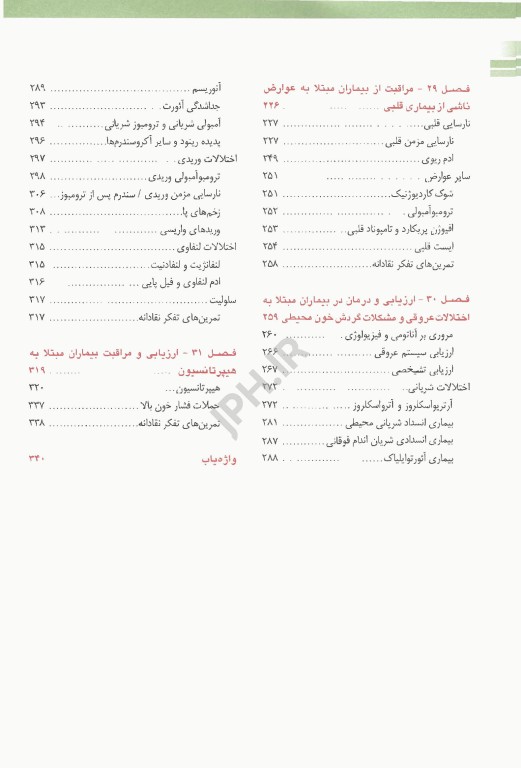 فصل ۲۹ - مراقبت از بیماران مبتلا به عوارض
ناشی از بیماری قلبی ۲۲۶
نارسایی قلبی ۲۲۷
نارسایی مزمن قلبی ۲۲۷
ادم ریوی ۲۴۹
سایر عوارض ۲۵۱
شوک کاردیوژنیک ۲۵۱
ترومبوآمبولی ۲۵۲
افیوژن پریکارد و تامپوناد قلبی ۲۵۳
ایست قلبی ۲۵۴
تمرین‌های تفکر نقادانه ۲۵۸
فصل ۳۰ - ارزیابی و درمان در بیماران مبتلا به
اختلالات عروقی و مشکلات گردش خون محیطی ۲۵۹
مروری بر آناتومی و فیزیولوژی ۲۶۰
ارزیابی سیستم عروقی ۲۶۶
ارزیابی تشخیصی ۲۶۷
اختلالات شریانی ۲۷۲
آرتریواسکلروز و آترواسکلروز ۲۷۲
بیماری انسداد شریانی محیطی ۲۸۱
بیماری انسدادی شریان اندام فوقانی ۲۸۷
بیماری آئورتوایلیاک ۲۸۸
آنوریسم ۲۸۹
جداشدگی آئورت ۲۹۳
آمبولی شریانی و ترومبوز شریانی ۲۹۴
پدیده رینود و سایر آکروسندرم‌ها ۲۹۶
اختلالات وریدی ۲۹۷
ترومبوآمبولی وریدی ۲۹۸
نارسایی مزمن وریدی / سندرم پس از ترومبوز ۳۰۶
زخم‌های پا ۳۰۸
وریدهای واریسی ۳۱۳
اختلالات لنفاوی ۳۱۵
لنفانژیت و لنفادنیت ۳۱۵
ادم لنفاوی و فیل پایی ۳۱۶
سلولیت ۳۱۷
تمرین‌های تفکر نقادانه ۳۱۷
فصل ۳۱ - ارزیابی و مراقبت بیماران مبتلا به
هیپرتانسیون ۳۱۹
هیپرتانسیون ۳۲۰
حملات فشار خون بالا ۳۳۷
تمرین‌های تفکر نقادانه ۳۳۸
واژه‌یاب ۳۴۰
JPH.IR